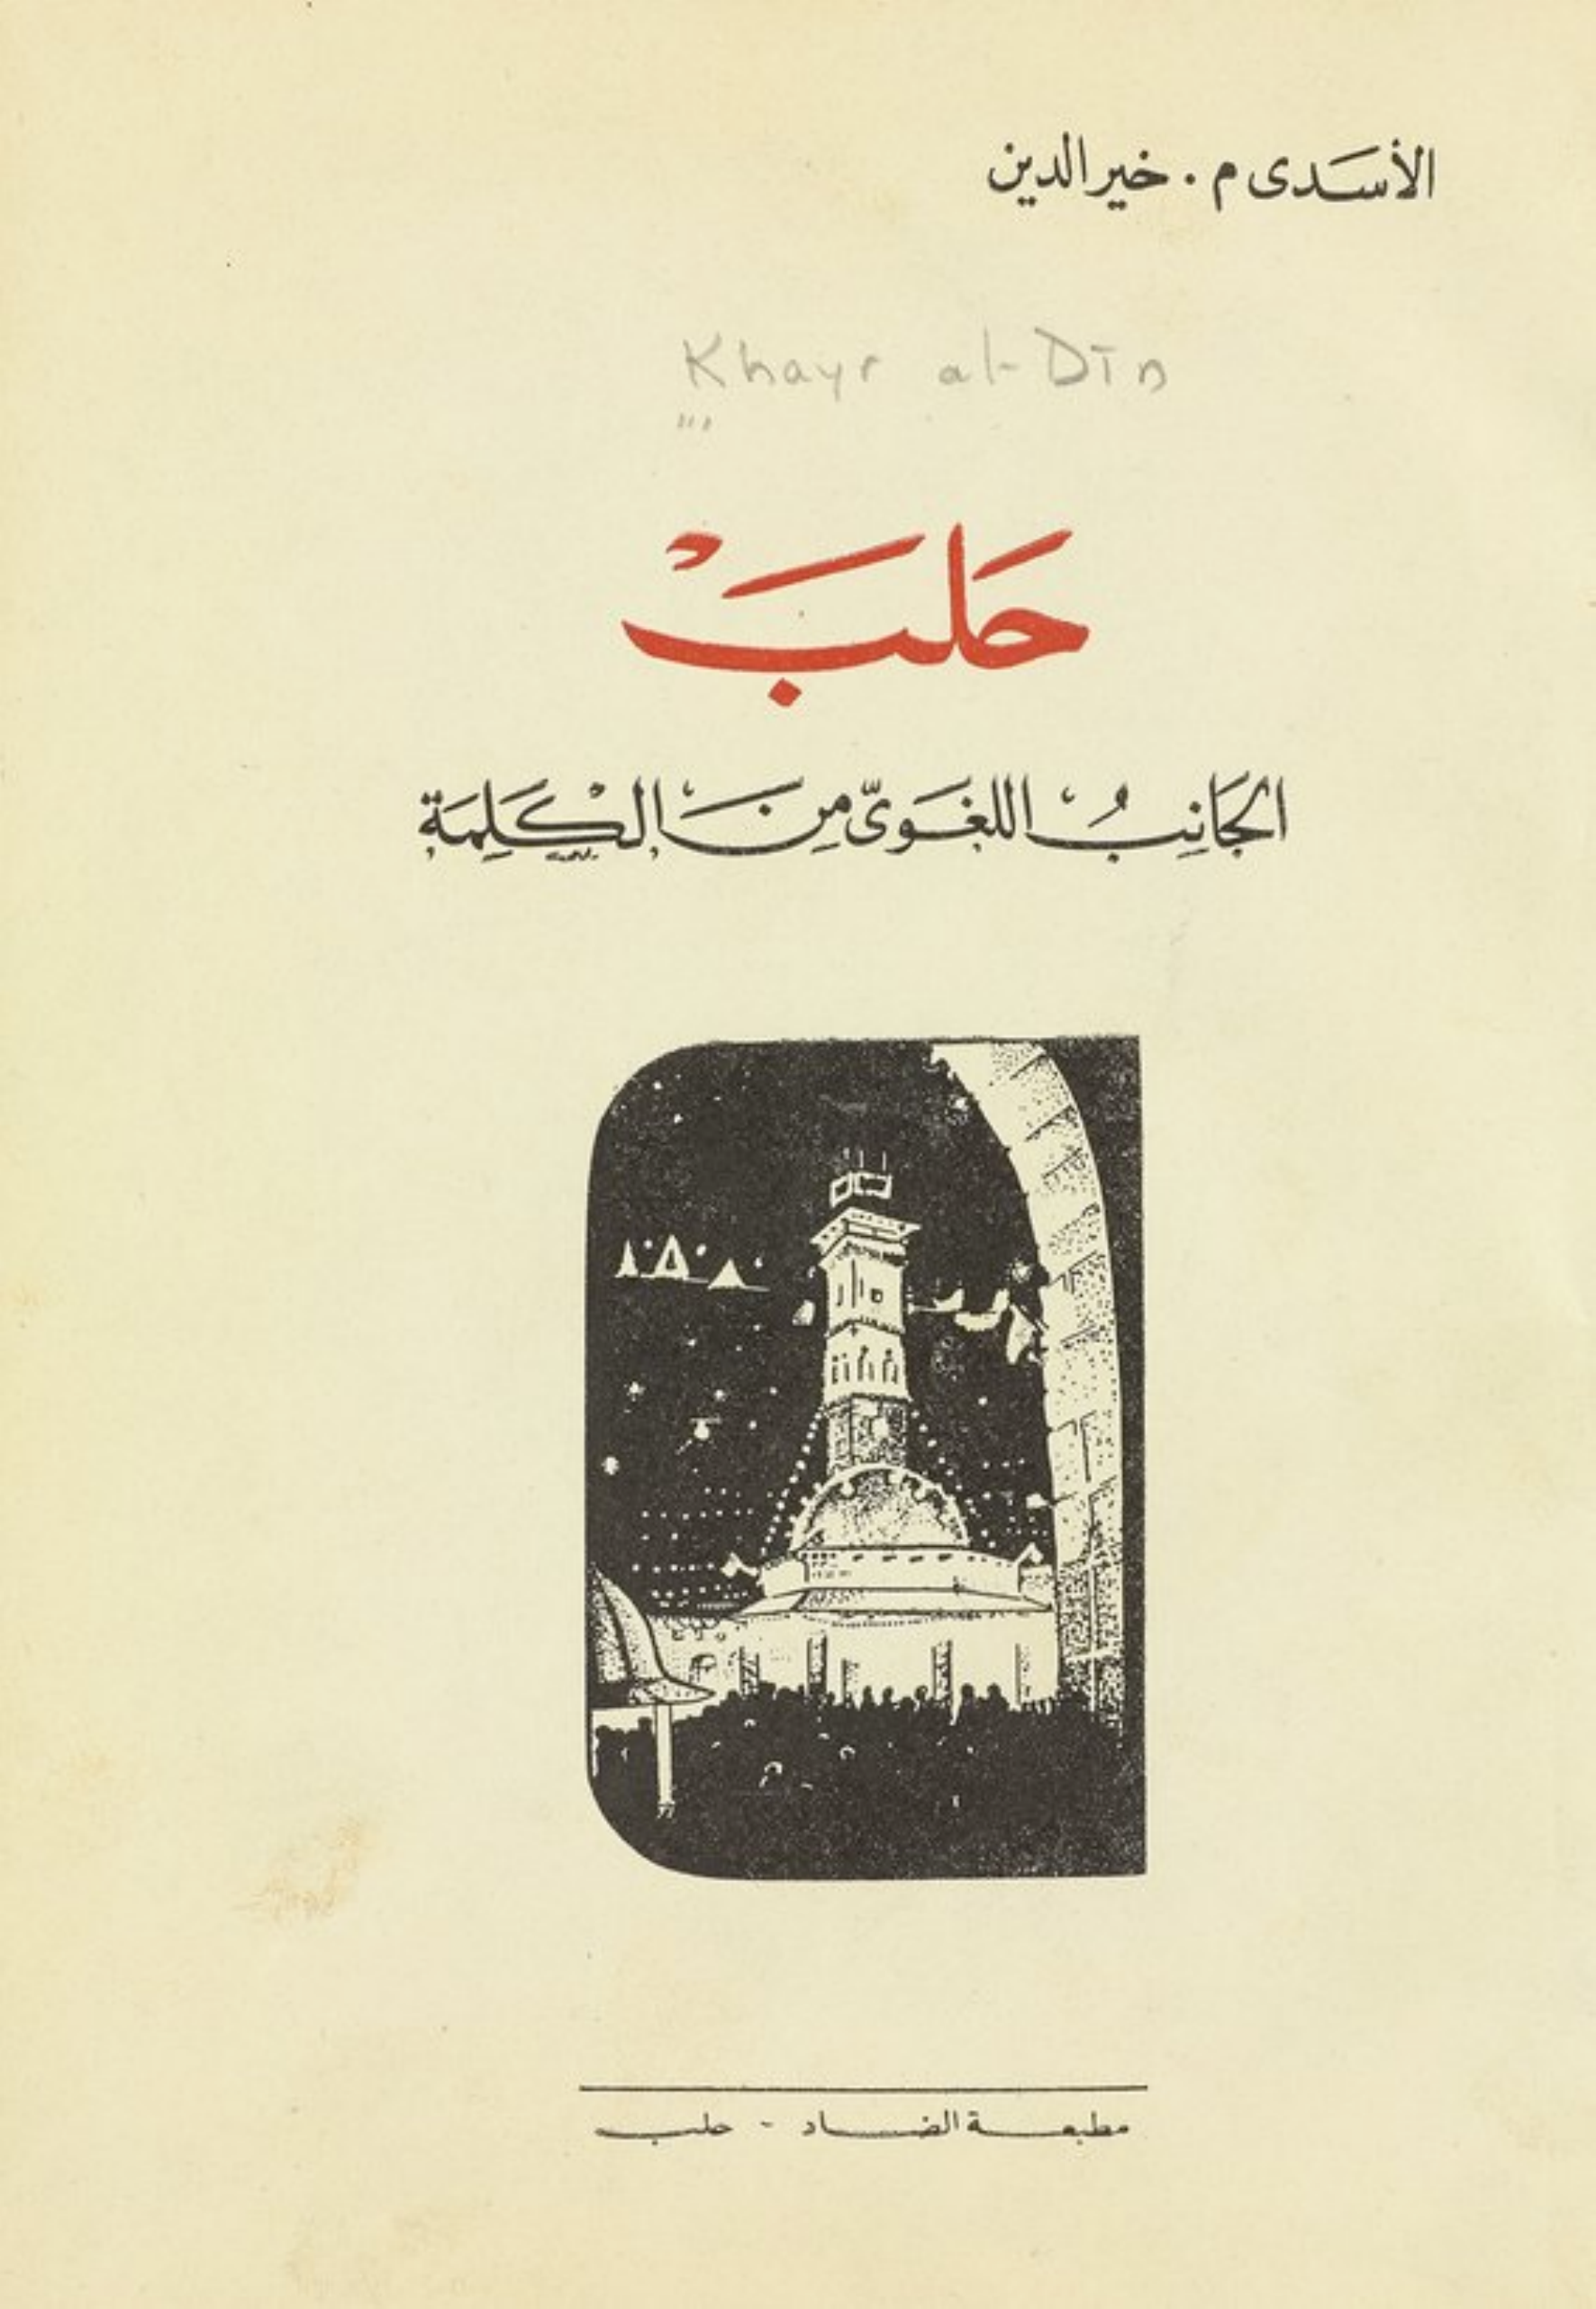 الأسَدى م . خير الدين
Khayr al-Dīn
حَلَبْ
الجَانِبُ اللغَوىّ مِنَ الكَلِمَة
مطبعة الضاد - حلب